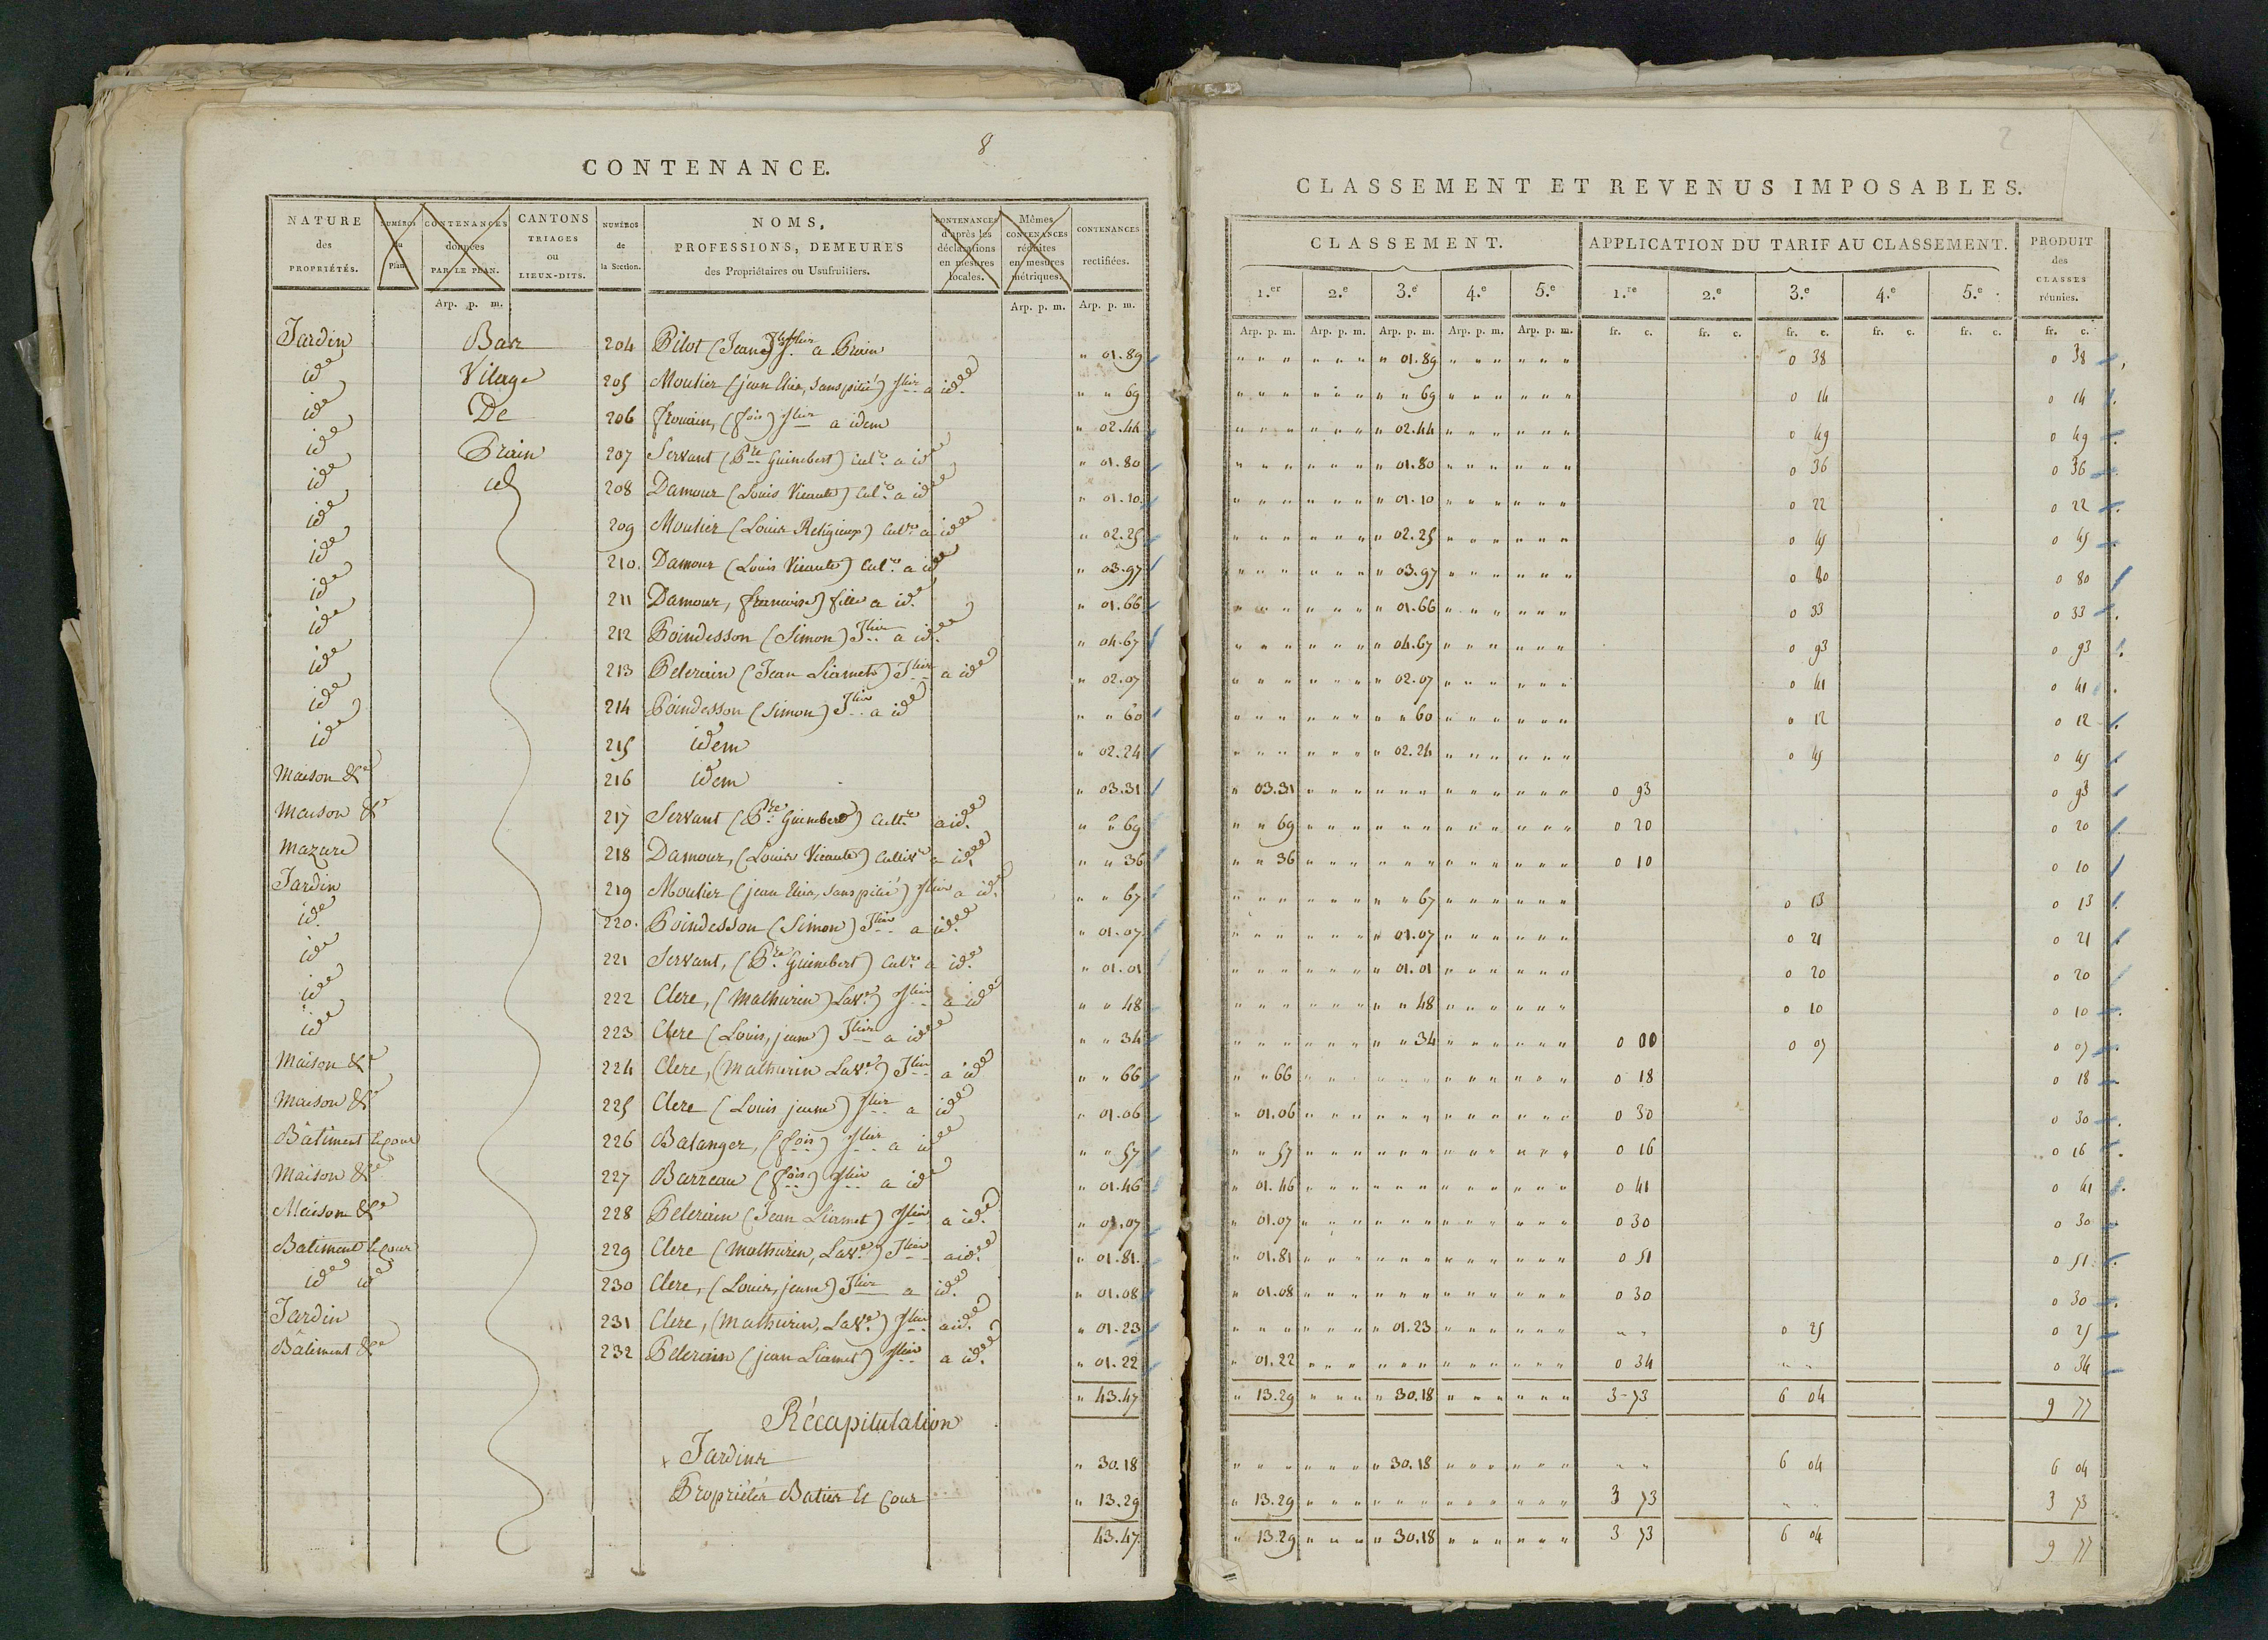 8
CONTENANCE.
NATURE des PROPRIÉTÉS. | NUMÉROS du Plan | CONTENANCES données PAR LE PLAN. | CANTONS TRIAGES ou LIEUX-DITS. | NUMÉROS de la Section. | NOMS, PROFESSIONS, DEMEURES des Propriétaires ou Usufruitiers. | CONTENANCES d'après les déclarations en mesures locales. | Mêmes CONTENANCES réduites en mesures métriques. | CONTENANCES rectifiées.
Arp. p. m. | Arp. p. m. | Arp. p. m.
Jardin Bas 204 Pilot (Jean à Prain " 01.89
id Vilage 205 Moutier (jean Elie, sans pitié) a id. " " 69
id De 206 frouin, (fois) a idem " 02.44
id Prain 207 Servant (Pre Guimbert) Culre a id " 01.80
id id 208 Damour (Louis Vicault) Culre a id " 01.10
id 209 Moutier (Louis Religieux) Culre a id " 02.25
id 210. Damour (Louis Vicault) Culre a id " 03.97
id 211 Damour, francoise) fille a id. " 01.66
id 212 Poindesson (Simon) Jlier a id. " 04.67
id 213 Pelerain (Jean Liamet) Jlier a id " 02.07
id 214 Poindesson (Simon) Jlier a id " " 60
id 215 idem " 02.24
Maison &a 216 idem " 03.31
Maison &a 217 Servant (Pre Guimbert) Cultre a id. " " 69
Mazure 218 Damour, (Louis Vicault) Cultivr a id " " 36
Jardin 219 Moutier (jean Elie, sans pitié) Jlier a id. " " 67
id. 220. Poindesson (Simon) Jlier a id. " 01.07
id 221 Servant, (Pre Guimbert) Culre a id. " 01.01
id 222 Clere, (Mathurin) Jlier a id " " 48
id 223 Clere (Louis, jeune) Jlier a id " " 34
Maison &a 224 Clere, (Mathurin Jlier a id " " 66
Maison &a 225 Clere (Louis jeune) Jlier a id " 01.06
Bâtiment et cour 226 Balanger, (fois) Jlier a id " " 57
Maison &a 227 Barreau (fois) Jlier a id " 01.46
Maison &a 228 Pelerain (Jean Liamet) Jlier a id. " 01.07
Batiment et cour 229 Clere (Mathurin, Jlier a id. " 01.81.
id id 230 Clere, (Louis, jeune) Jlier a id. " 01.08
Jardin 231 Clere, (Mathurin, Jlier a id. " 01.23
Bâtiment &a 232 Pelerain (jean Liamet) Jlier a id. " 01.22
" 43.47
Récapitulation
Jardins " 30.18
Propriétés Baties et Cour " 13.29
43.47
2
CLASSEMENT ET REVENUS IMPOSABLES.
CLASSEMENT. | APPLICATION DU TARIF AU CLASSEMENT. | PRODUIT des CLASSES réunies.
1.er | 2.e | 3.e | 4.e | 5.e | 1.re | 2.e | 3.e | 4.e | 5.e
Arp. p. m. | Arp. p. m. | Arp. p. m. | Arp. p. m. | Arp. p. m. | fr. c. | fr. c. | fr. c. | fr. c. | fr. c. | fr. c.
" 01.89 0 38 0 38
" " 69 0 14 0 14
" 02.44 0 49 0 49
" 01.80 0 36 0 36
" 01.10 0 22 0 22
" 02.25 0 45 0 45
" 03.97 0 80 0 80
" 01.66 0 33 0 33
" 04.67 0 93 0 93
" 02.07 0 41 0 41
" " 60 0 12 0 12
" 02.24 0 45 0 45
" 03.31 0 93 0 93
" " 69 0 20 0 20
" " 36 0 10 0 10
" " 67 0 13 0 13
" 01.07 0 21 0 21
" 01.01 0 20 0 20
" " 48 0 10 0 10
" " 34 0 00 0 07 0 07
" " 66 0 18 0 18
" 01.06 0 30 0 30
" " 57 0 16 0 16
" 01.46 0 41 0 41
" 01.07 0 30 0 30
" 01.81 0 51 0 51
" 01.08 0 30 0 30
" 01.23 " " 0 25 0 25
" 01.22 0 34 " " 0 34
" 13.29 " 30.18 3 73 6 04 9 77
" 30.18 " " 6 04 6 04
" 13.29 3 73 " " 3 73
" 13.29 " 30.18 3 73 6 04 9 77